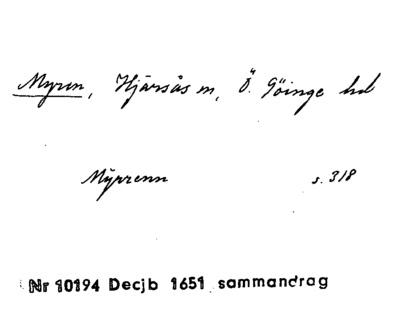 Myren, Hjärsås sn, Ö. Göinge hd
Mÿrenn s. 318
Nr 10194 Decjb 1651 sammandrag